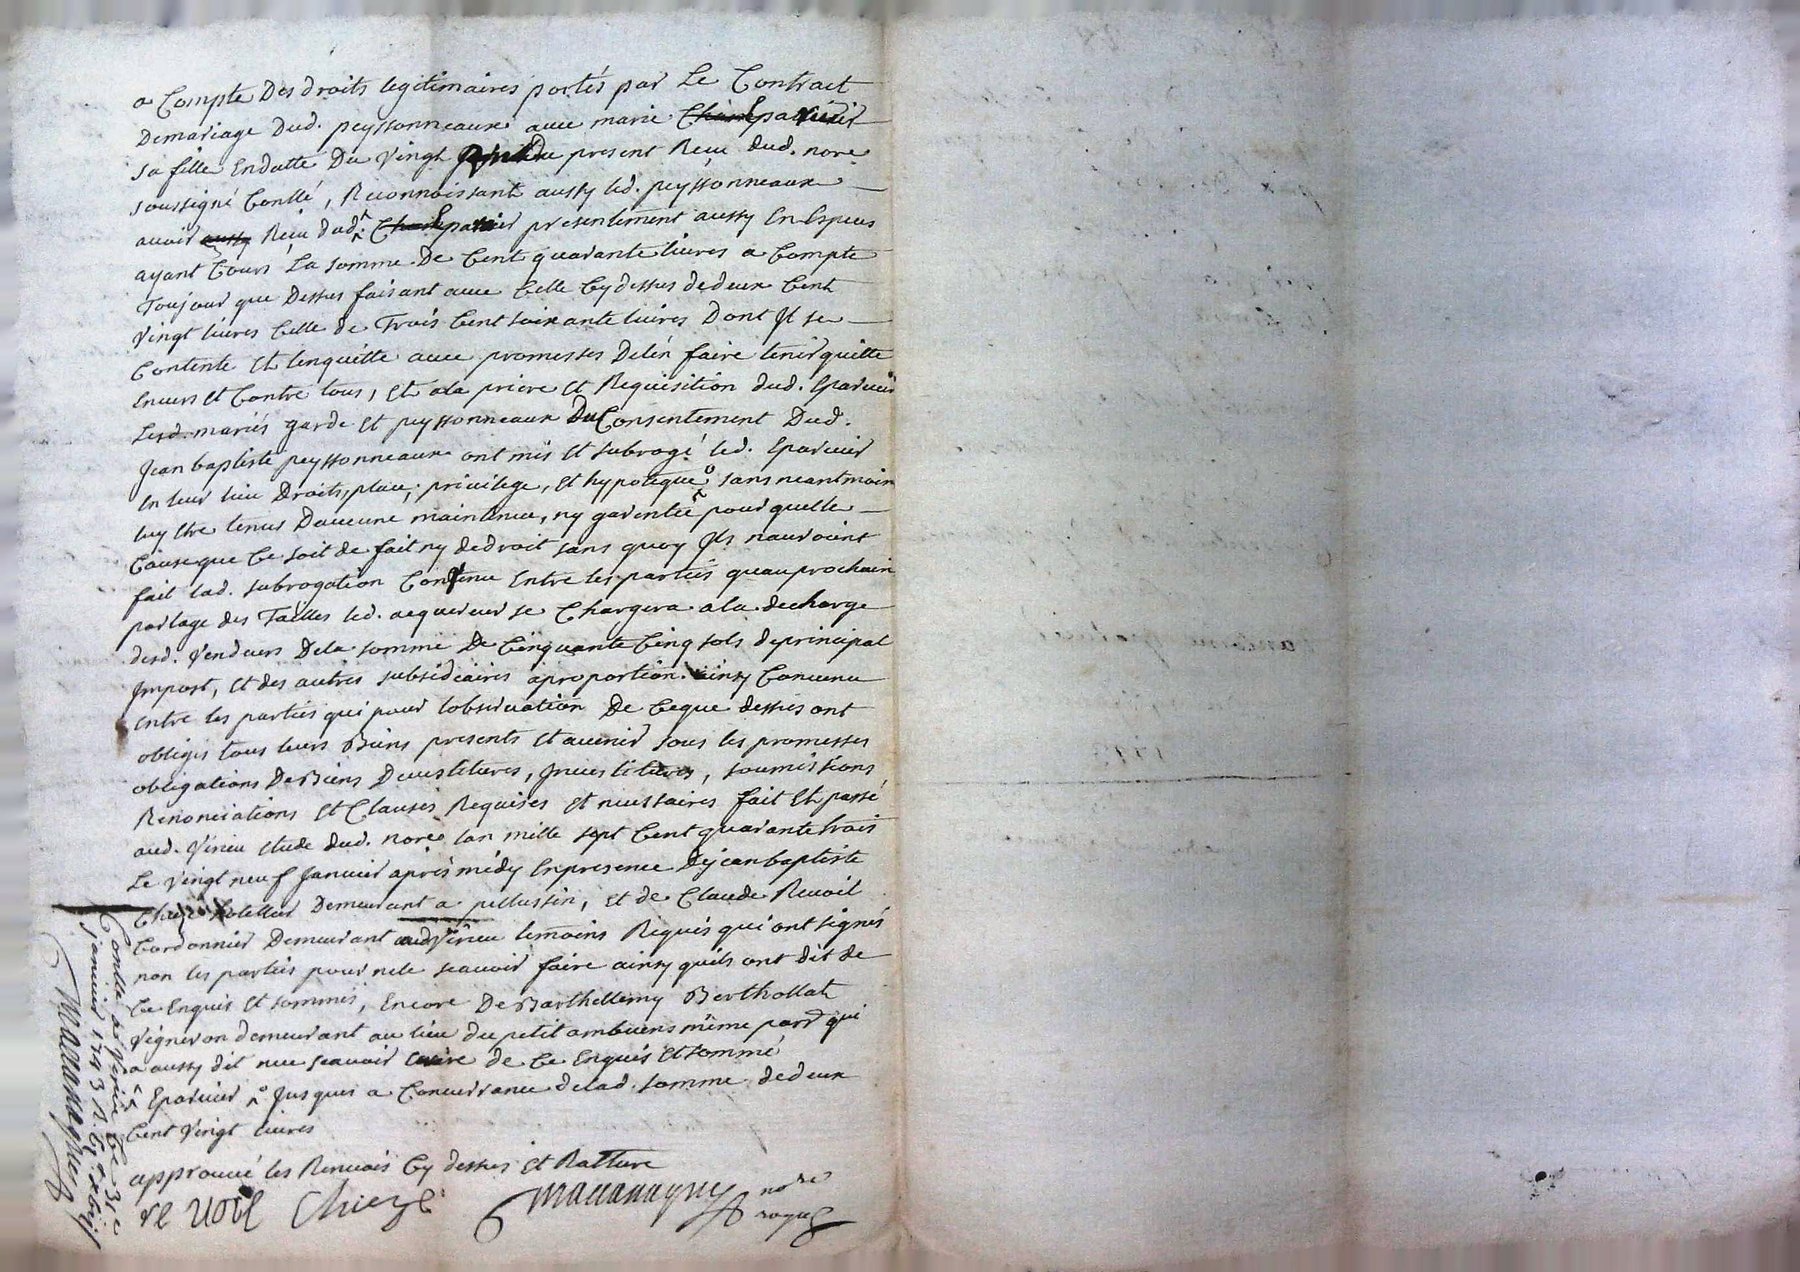 a Compte Des droits legitimaires portés par Le Contract
Demariage Dud. peyssonneaux avec marie
sa fille Endatte Du vingt present Receu dud. nore
soussigné Conllé, Reconnoissant aussy led. peyssonneaux
avoir aussy Reçu dud. presentement aussy En Especes
ayant Cours La somme De Cent quarante livres a Compte
Toujour que Dessus faisant avec Celle Cydessus dedeux Cent
Vingt livres Celle de Trois Cent soixante livres Dont Il se
Contente Et lenquitte avec promesses Delen faire tenir quitte
Envers Et Contre tous, Et ala priere Et Requisition dud. Eparvier
Lesd. mariés garde Et peyssonneaux Du Consentement Dud.
Jean baptiste peyssonneaux ont mis Et subrogé led. Eparvier
En leur lieu Droits, place, privilege, Et hypoteque sans neantmoin
luy Etre tenus Daucune maintenue, ny garentie pour quelle
Cause que Ce soit de fait ny dedroit sans quoy Ils nauroient
fait lad. subrogation Convenu Entre les parties quau prochain
partage des Tailles led. acquereur se Chargera ala decharge
desd. Vendeurs Dela somme De Cinquante Cinq sols deprincipal
Impost, Et des autres subsidiaires aproportion. ainsy Convenu
Entre les parties qui pour lobservation De Ceque dessus ont
obligés tous leurs Biens presents Et avenir sous les promesses
obligations De Biens Devestitures, Investitures, soumissions
Renonciations Et Clauses Requises Et necessaires fait Et passé
aud. Virieu Etude dud. nore lan mille sept Cent quarante trois
Le Vingt neuf Janvier après médy Enpresence De jean baptiste
hotellier Demeurant a pellussin, Et de Claude Revoil
Cordonnier Demeurant aud Virieu temoins Requis qui ont signés
non les parties pour nele scavoir faire ainsy quils ont dit de
Ce Enquis Et sommés, Encore De Barthellemy Berthollat
vigneron demeurant au lieu du petit ambuens même parr qui
a aussy dit nee scavoir de Ce Enquis Et sommé
Eparvier Jusques a Concurrance delad. somme dedeux
Cent Vingt livres
approuvé les Renvois Cy dessus Et Rature
re voil Chieze nore
Conllé a Virieu Ce 31e
janvier 1743 R.